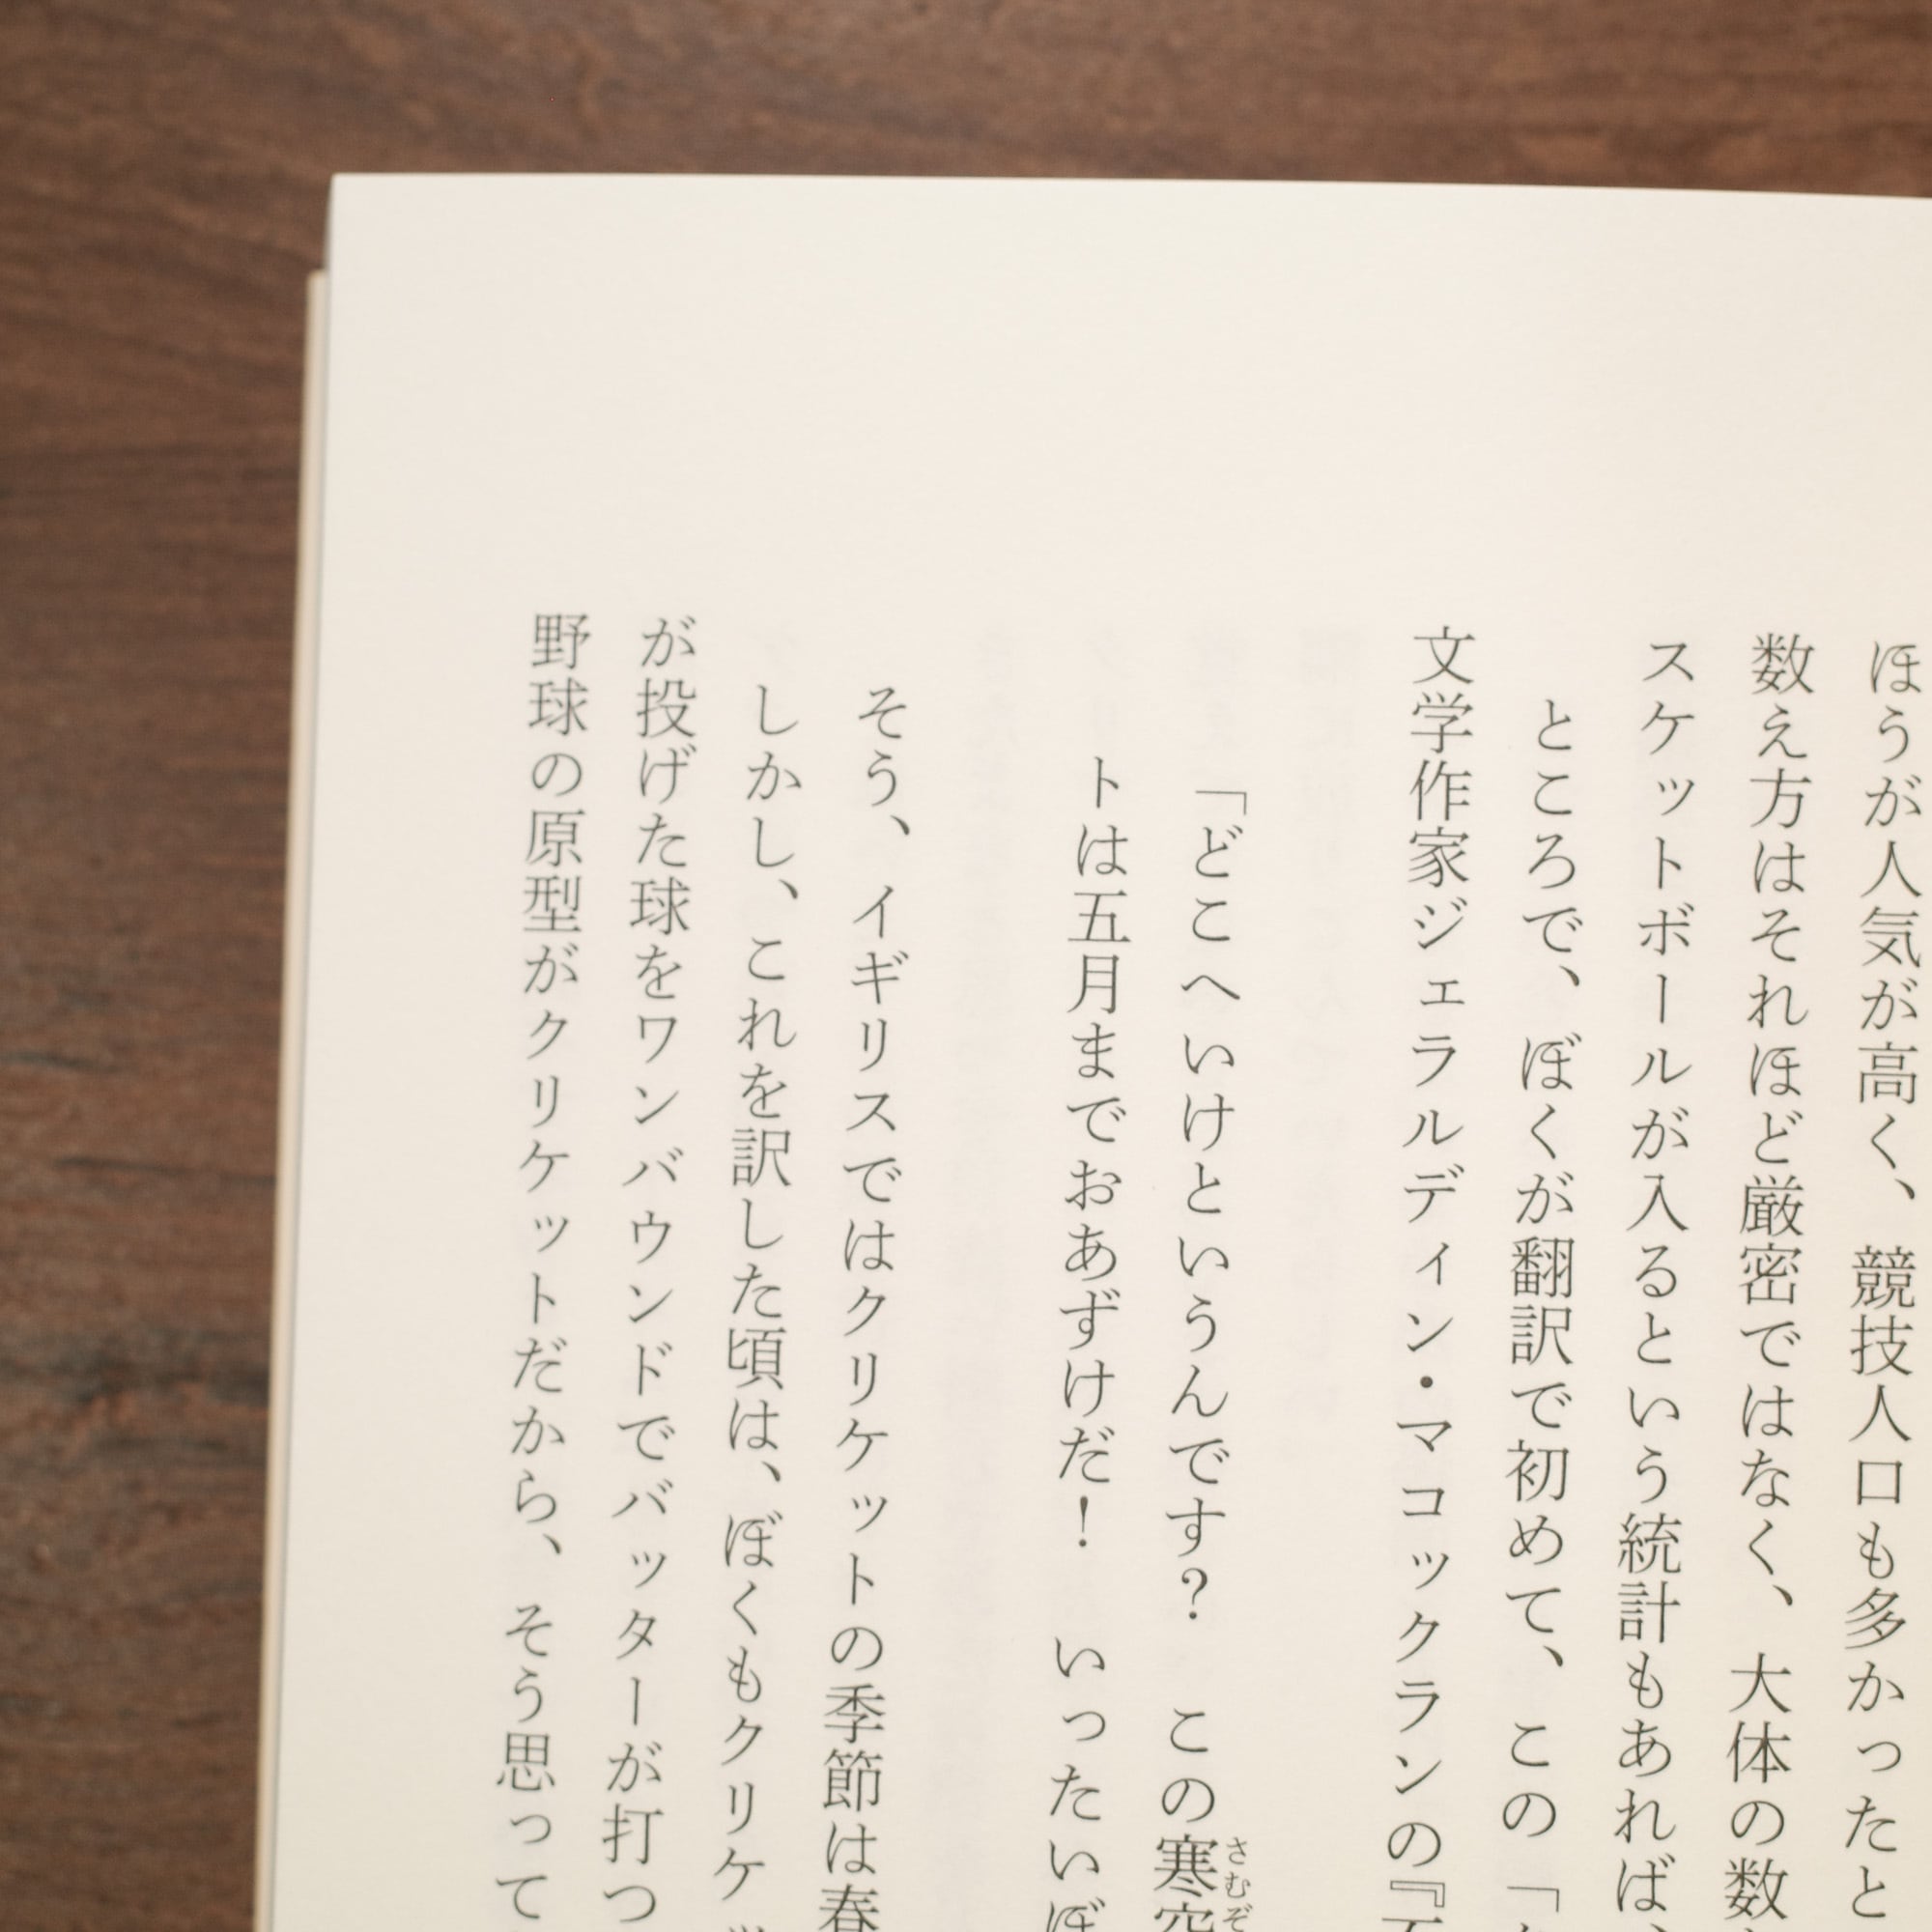 ほうが人気が高く、競技人口も多かったと
数え方はそれほど厳密ではなく、大体の数
スケットボールが入るという統計もあれば、
ところで、ぼくが翻訳で初めて、この「
文学作家ジェラルディン・マコックランの『
「どこへいけというんです? この寒空
さむぞ
トは五月までおあずけだ! いったいぼ
そう、イギリスではクリケットの季節は春
しかし、これを訳した頃は、ぼくもクリケッ
が投げた球をワンバウンドでバッターが打つ
野球の原型がクリケットだから、そう思って